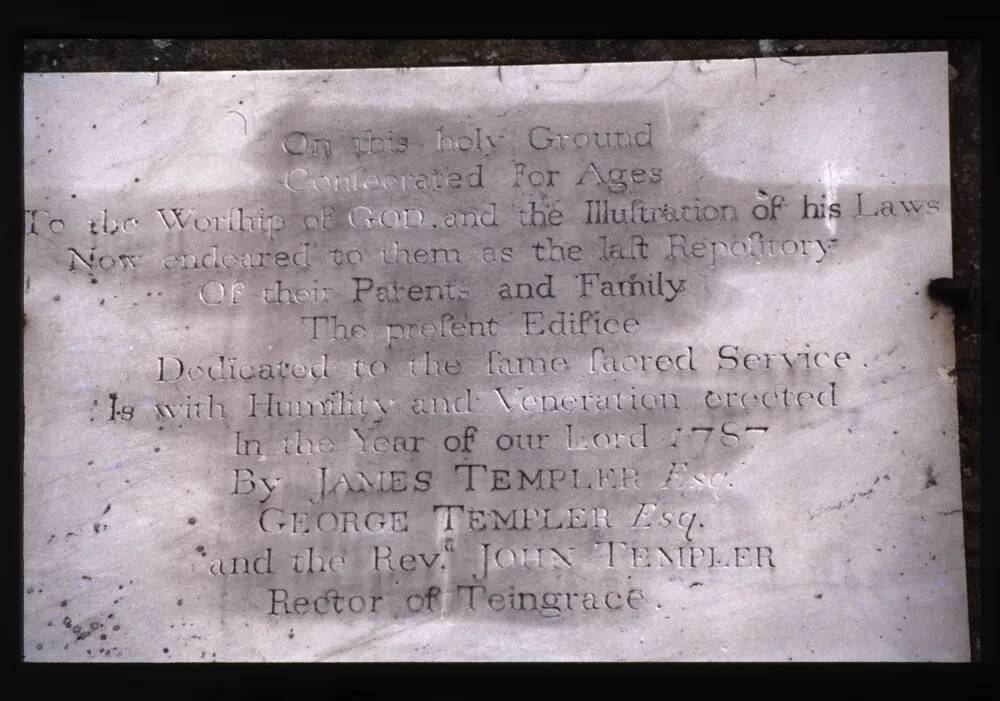 On this holy Ground
Conſecrated for Ages
To the Worſhip of GOD. and the Illuſtration of his Laws
Now endeared to them as the laſt Repoſitory
Of their Parents and Family
The preſent Edifice
Dedicated to the ſame ſacred Service.
Is with Humility and Veneration erected
In the Year of our Lord 1787
By JAMES TEMPLER Esq.
GEORGE TEMPLER Esq.
and the Rev.d JOHN TEMPLER
Rector of Teingrace.